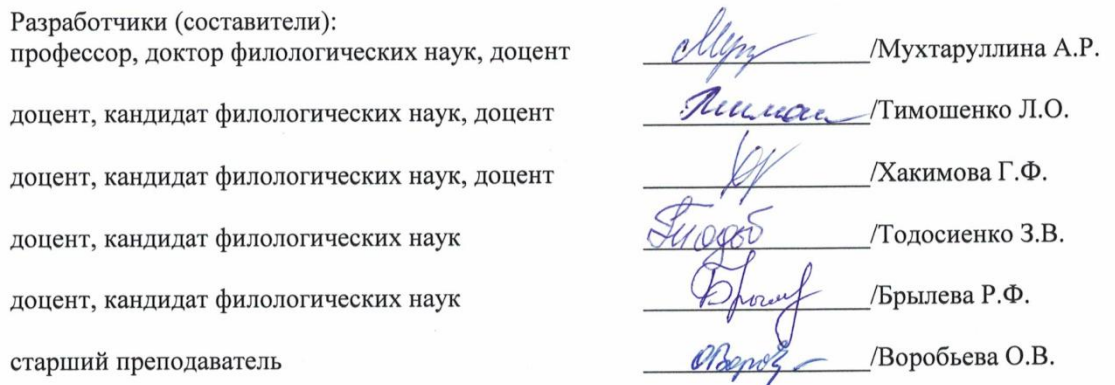 Разработчики (составители):
профессор, доктор филологических наук, доцент /Мухтаруллина А.Р.
доцент, кандидат филологических наук, доцент /Тимошенко Л.О.
доцент, кандидат филологических наук, доцент /Хакимова Г.Ф.
доцент, кандидат филологических наук /Тодосиенко З.В.
доцент, кандидат филологических наук /Брылева Р.Ф.
старший преподаватель /Воробьева О.В.